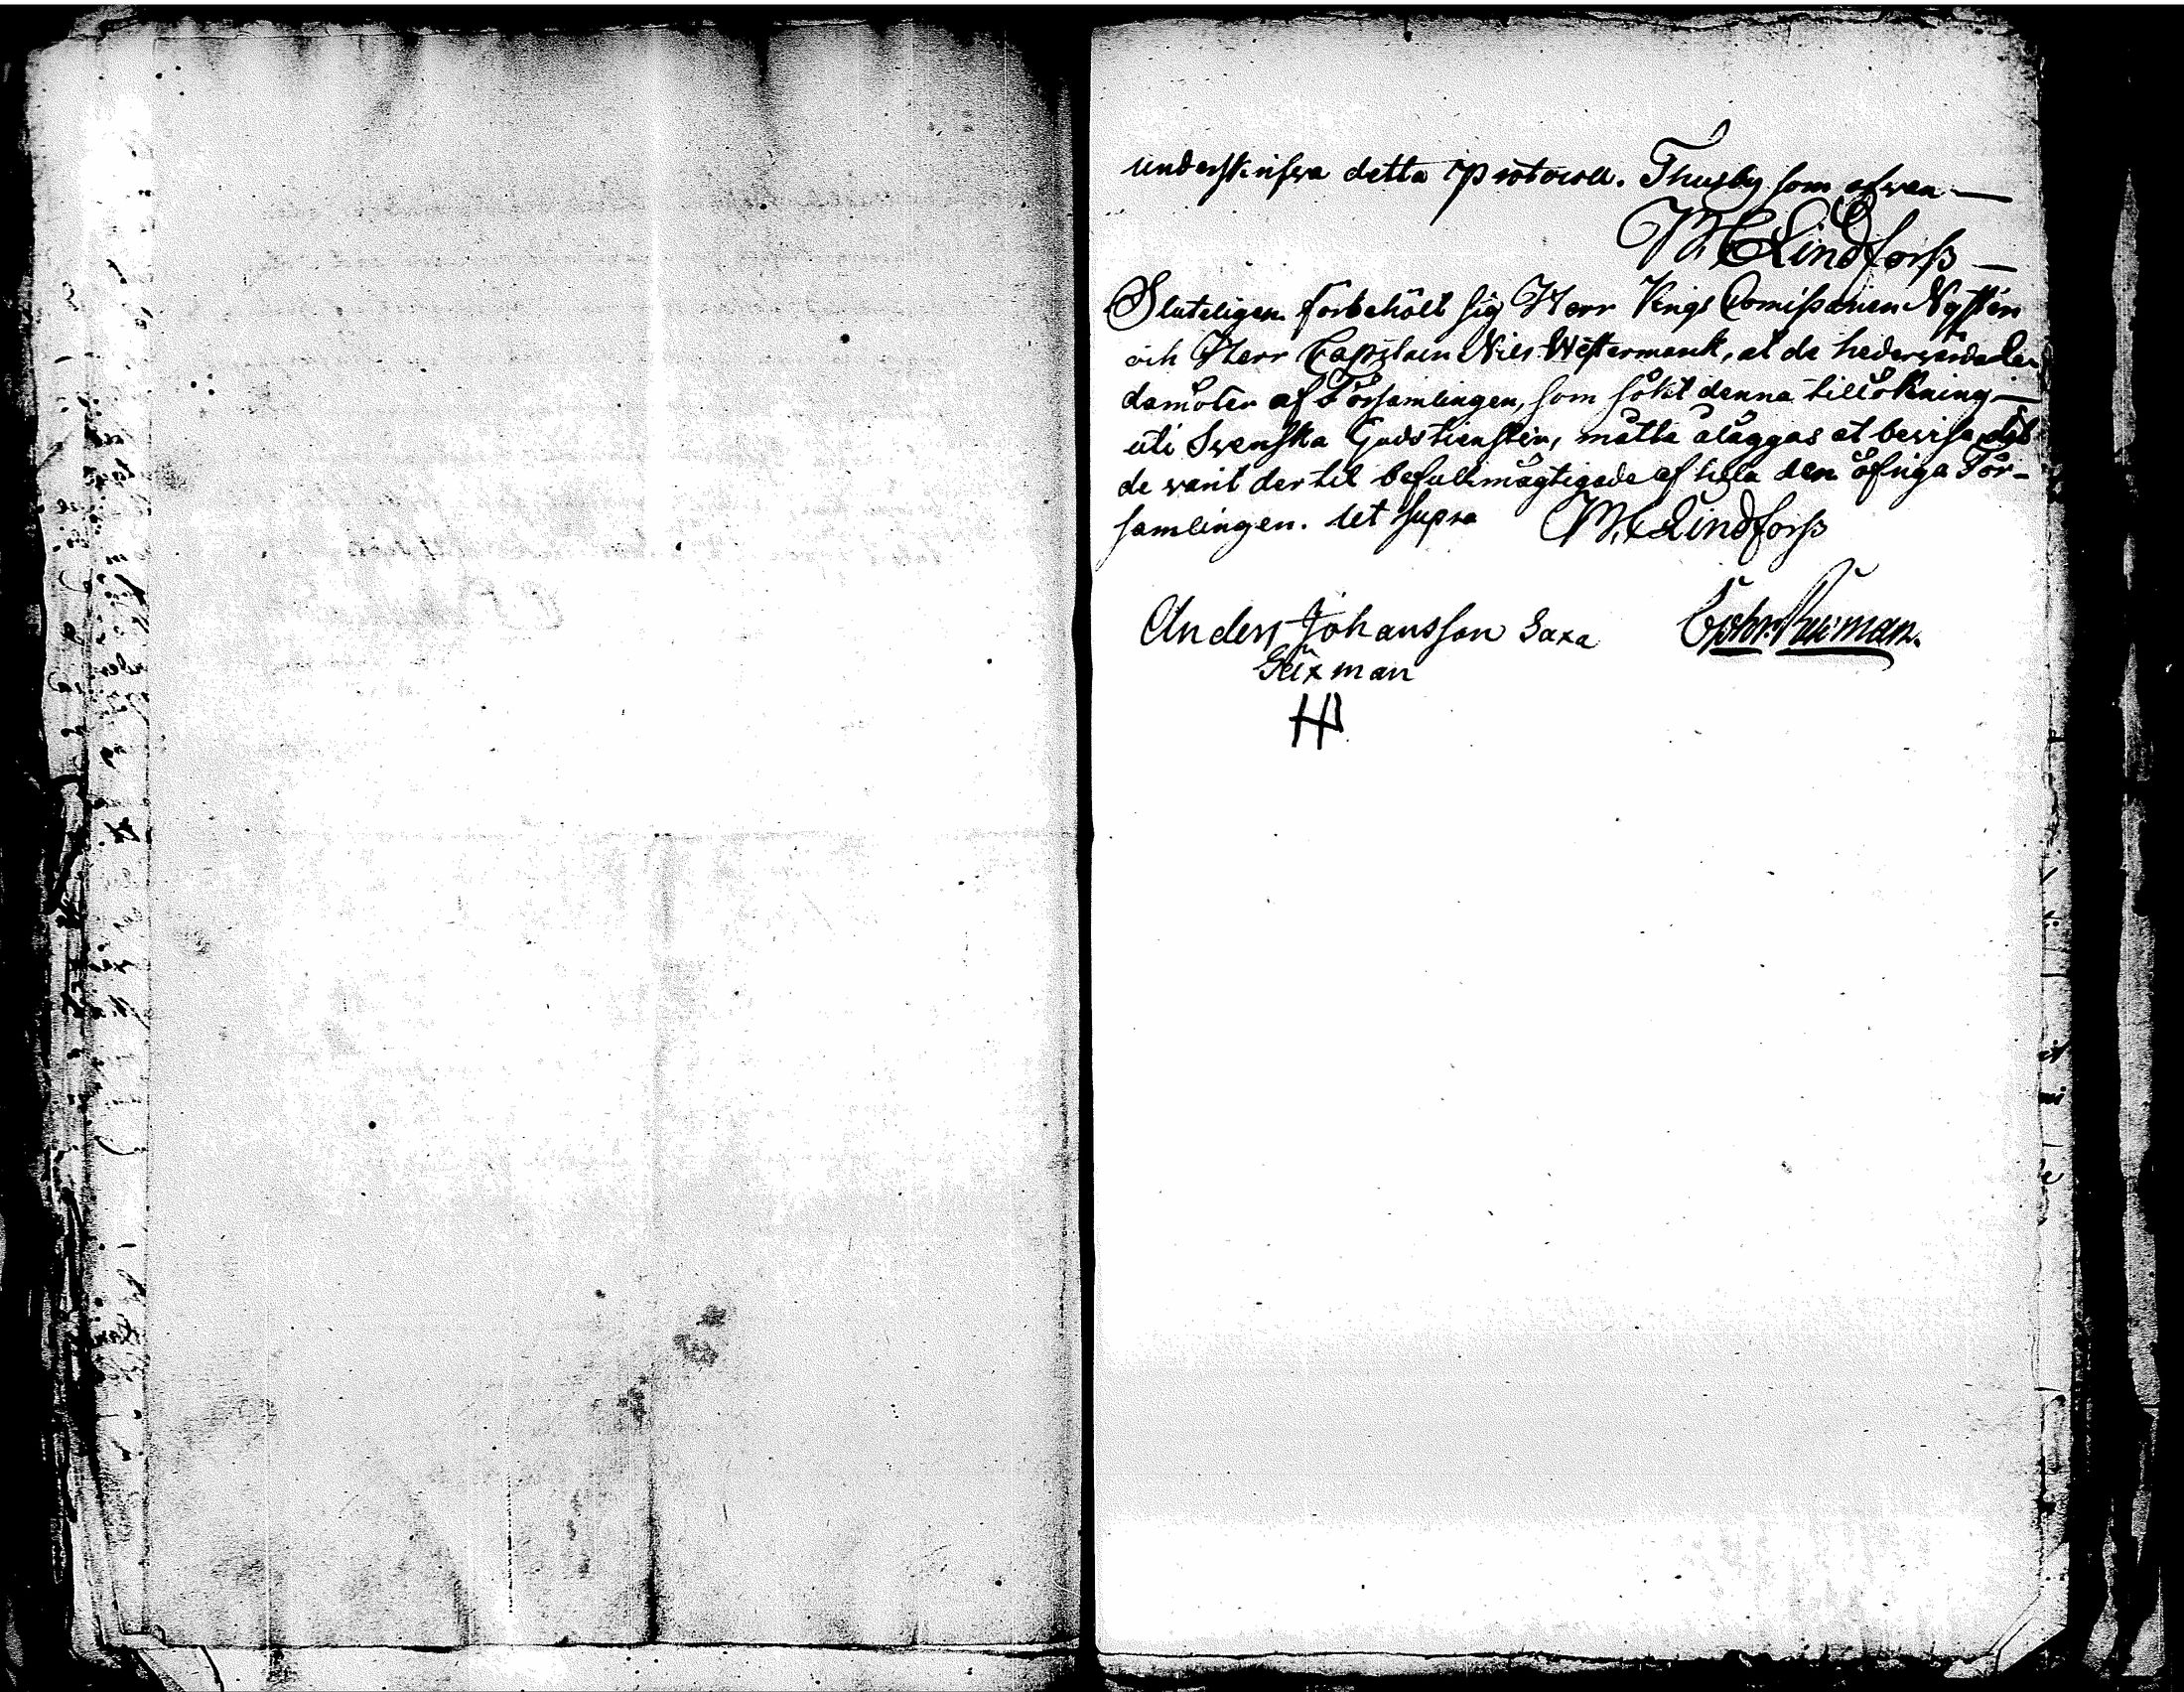 underskrifwa detta protocoll. Thusby som ofwan —
M. C. Lindforss —
Sluteligen förbehölt sig Herr Krigs Comissarien Nyssten
och Herr Capitain Nils Westermark, at de hederwärda Le-
damöter af Församlingen, som sökt denna tillökning —
uti Svenska Gudstiensten, måtte åläggas at bevisa, det
de varit der til befullmägtigade af hela den öfriga För-
samlingen. Ut supra M. C. Lindforss
Anders Johansson Saxa
Sexman